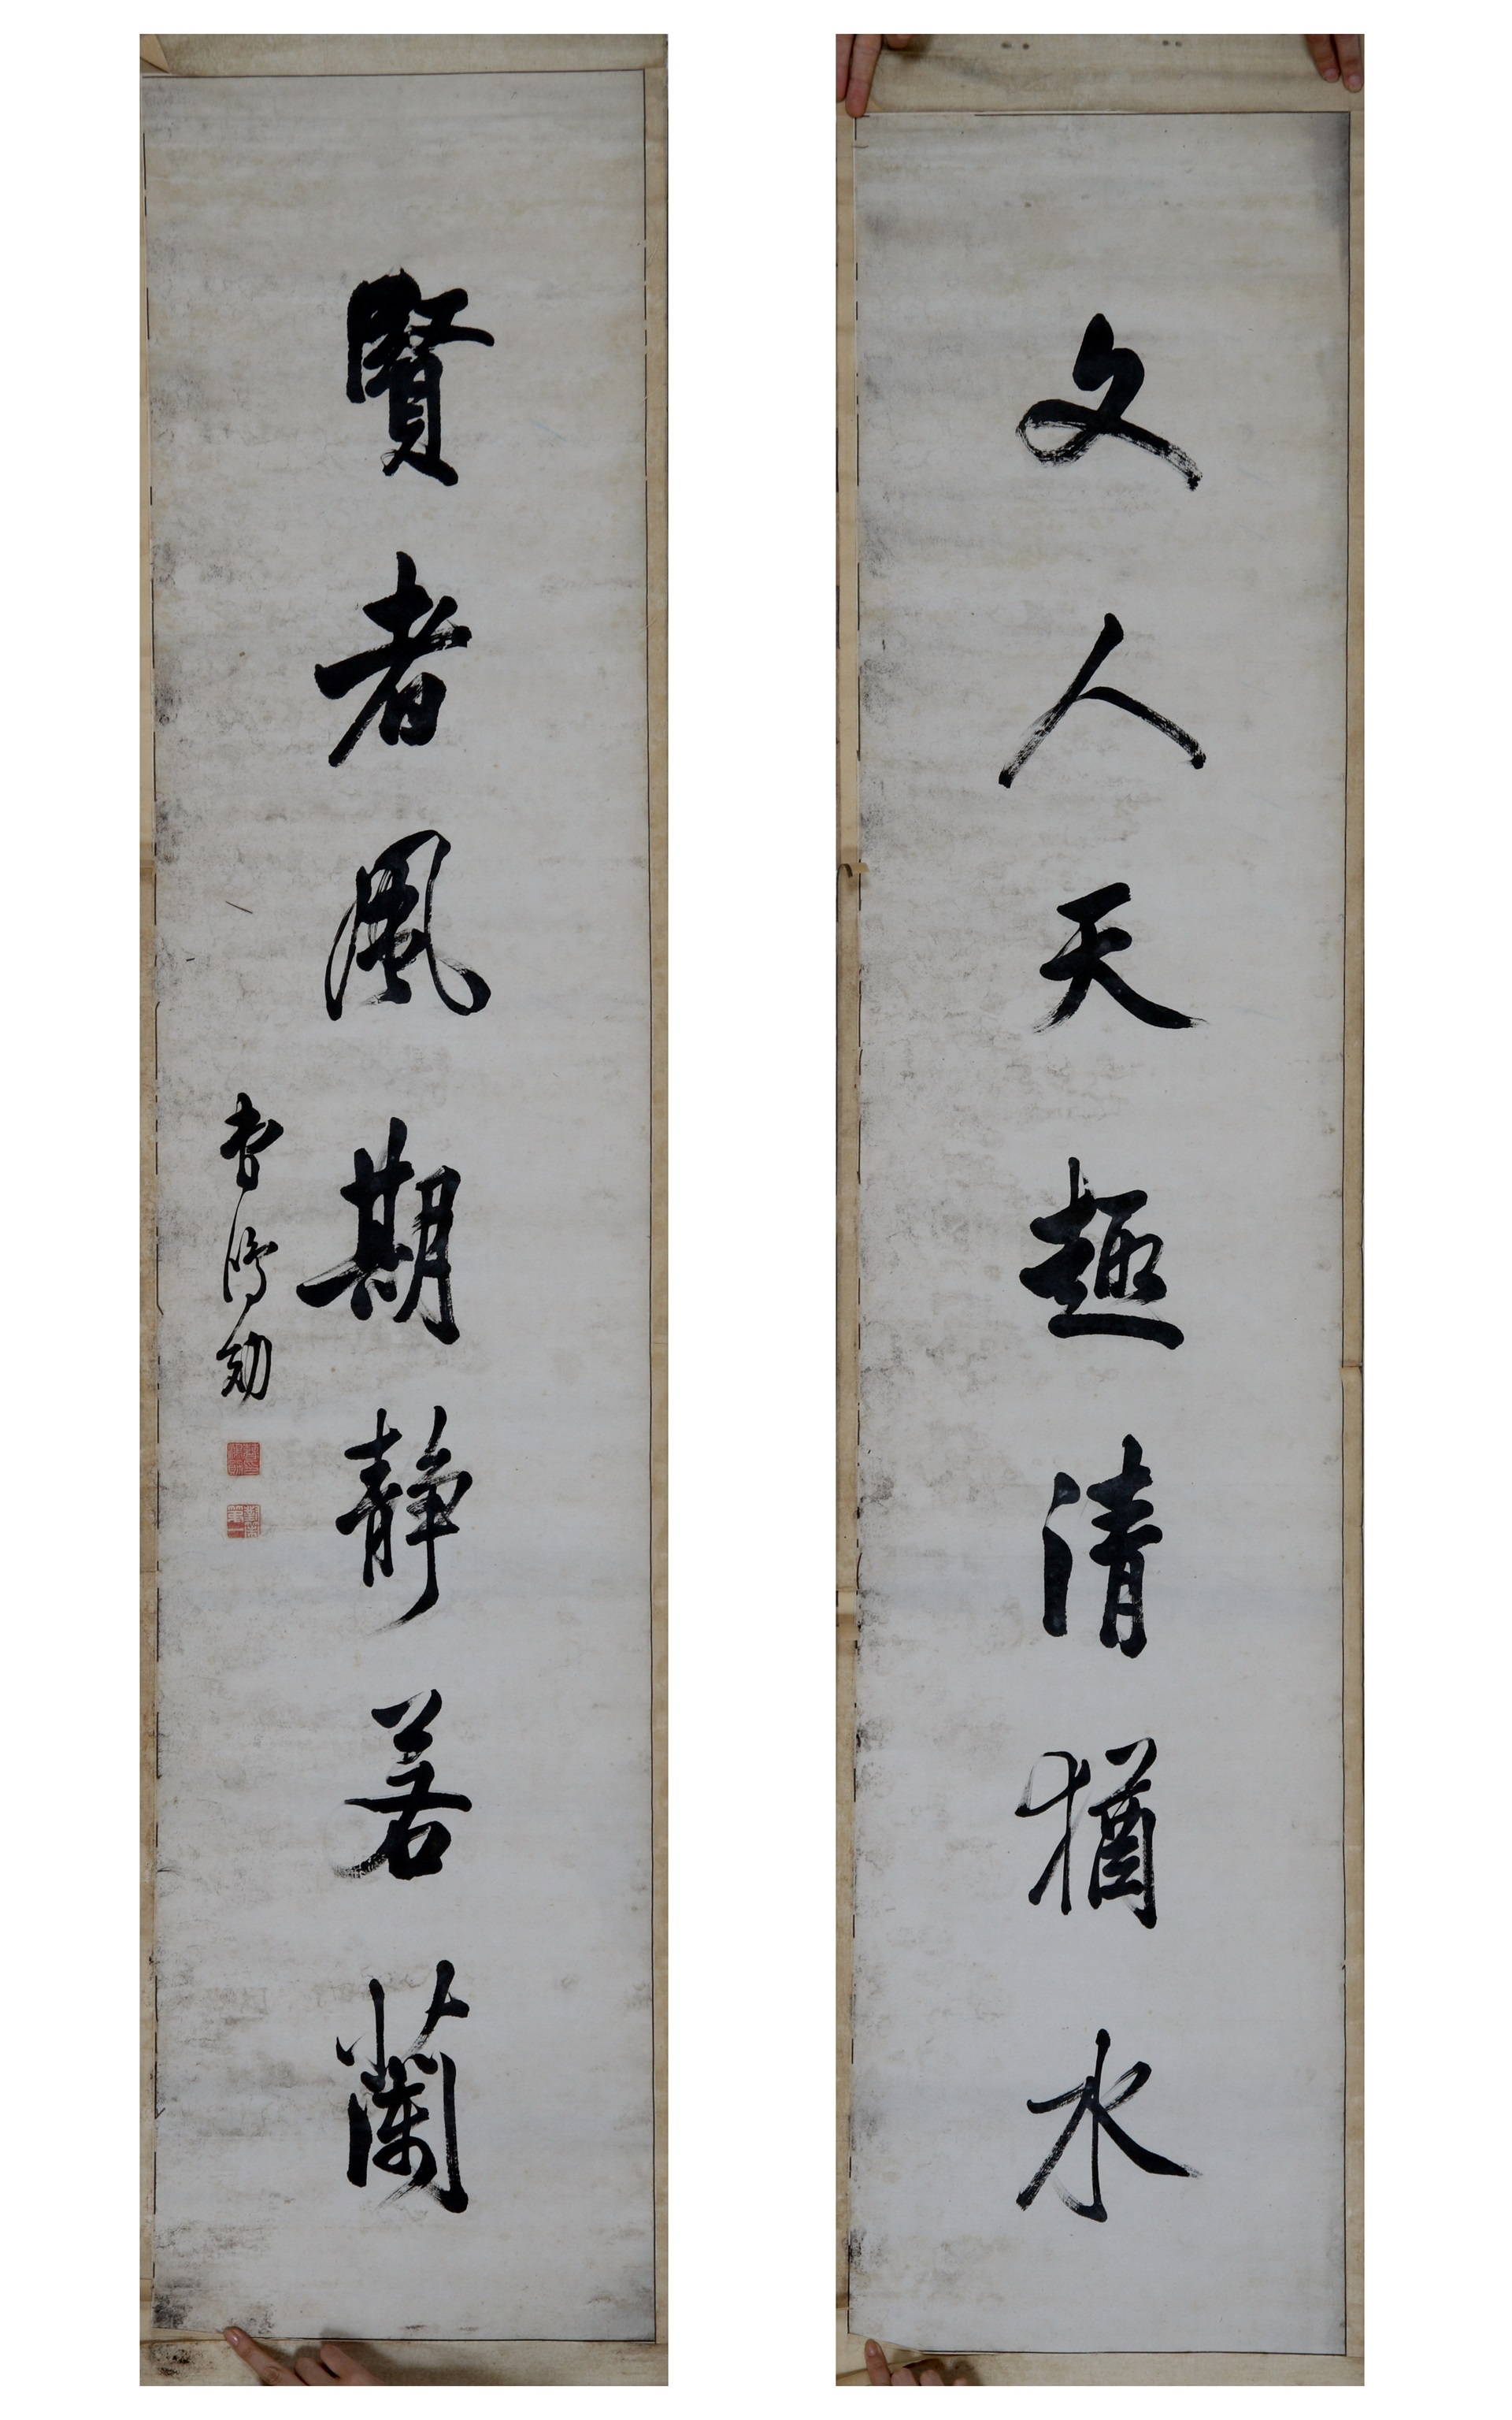 文人天趣清猶水
賢者風期靜若蘭
曹鴻勛